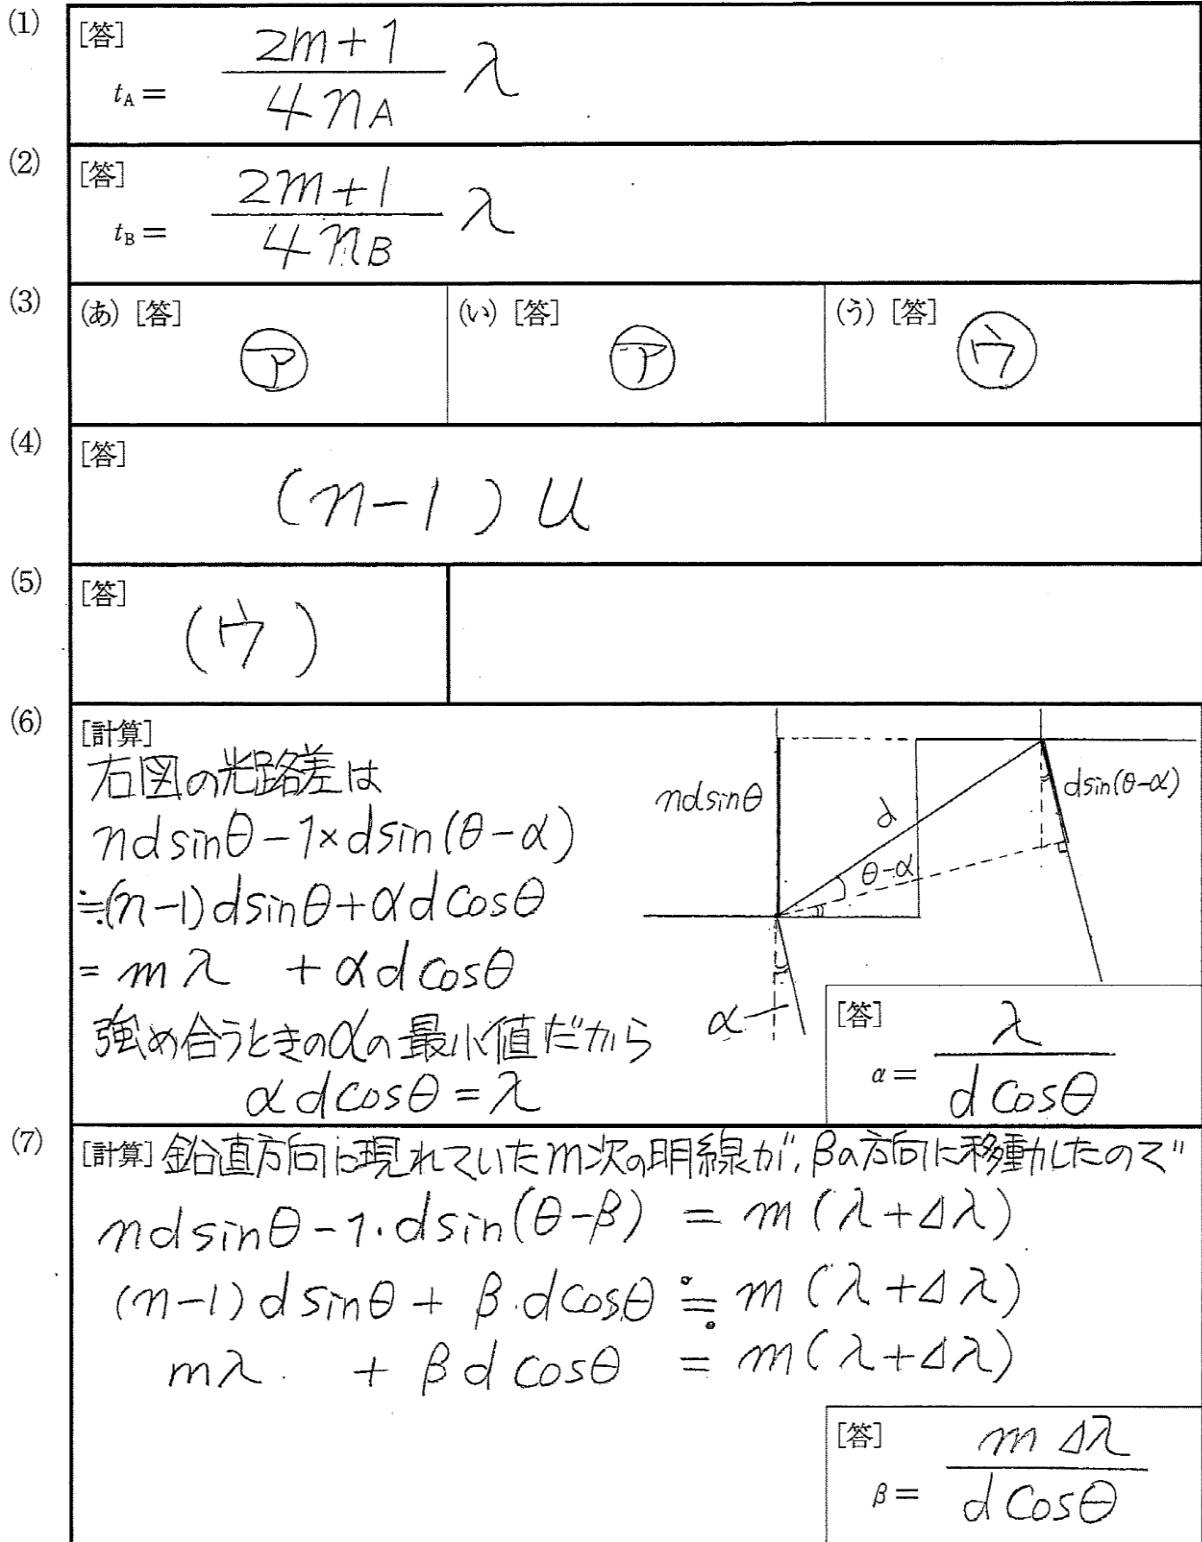 (1)
[答]
t_A = (2m+1)/(4n_A) λ
(2)
[答]
t_B = (2m+1)/(4n_B) λ
(3)
(あ) [答] ㋐
(い) [答] ㋐
(う) [答] ㋒
(4)
[答]
(n-1)u
(5)
[答]
(ウ)
(6)
[計算]
右図の光路差は
ndsinθ-1×dsin(θ-α)
≒(n-1)dsinθ+αdcosθ
= mλ +αdcosθ
強め合うときのαの最小値だから
αdcosθ=λ
ndsinθ
d
dsin(θ-α)
θ-α
α
[答]
α= λ/(dcosθ)
(7)
[計算] 鉛直方向に現れていたm次の明線が、βの方向に移動したので
ndsinθ-1・dsin(θ-β) = m(λ+Δλ)
(n-1)dsinθ+β・dcosθ ≒ m(λ+Δλ)
mλ +βdcosθ = m(λ+Δλ)
[答]
β= mΔλ/(dcosθ)